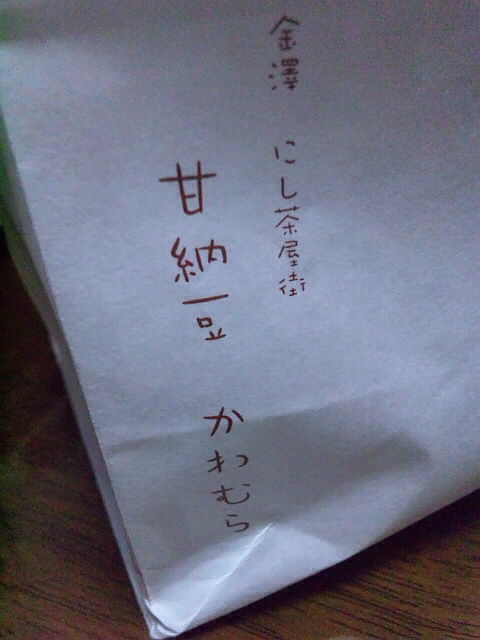 金澤 にし茶屋街
甘納豆 かわむら